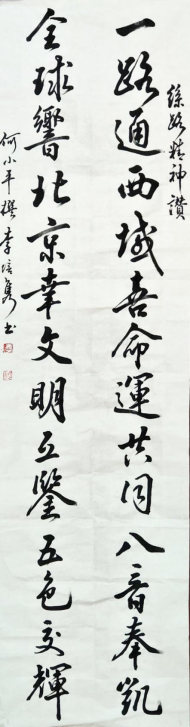 絲路精神讚
一路通西域喜命運共同八音奉凱
全球響北京幸文明互鑒五色交輝
何小平撰 李培隽书